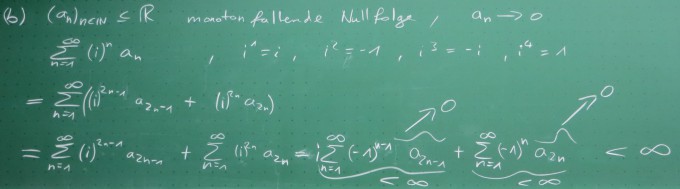 (b) (aₙ)ₙ∈ℕ ⊆ ℝ monoton fallende Nullfolge, aₙ → 0
∞∑n=1 (i)ⁿ aₙ , i¹=i, i²=-1, i³=-i, i⁴=1
= ∞∑n=1 ((i)²ⁿ⁻¹ a₂ₙ₋₁ + (i)²ⁿ a₂ₙ) → 0 → 0
= ∞∑n=1 (i)²ⁿ⁻¹ a₂ₙ₋₁ + ∞∑n=1 (i)²ⁿ a₂ₙ = i ∞∑n=1 (-1)ⁿ⁻¹ a₂ₙ₋₁ + ∞∑n=1 (-1)ⁿ a₂ₙ < ∞
< ∞ < ∞